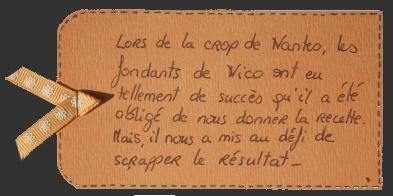 Lors de la crop de Nantes, les
fondants de Nico ont eu
tellement de succès qu'il a été
obligé de nous donner la recette.
Mais, il nous a mis au défi de
scrapper le résultat_